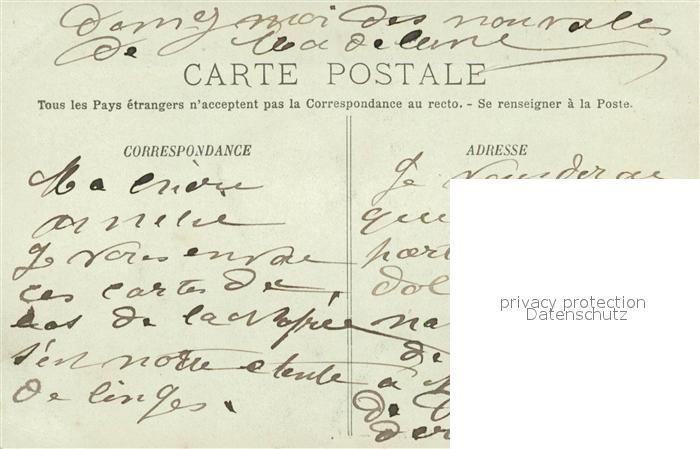 Donnez moi des nouvelles
de Madeleine
CARTE POSTALE
Tous les Pays étrangers n'acceptent pas la Correspondance au recto. - Se renseigner à la Poste.
CORRESPONDANCE
Ma chère
Amélie
Je vous envoie
ces cartes de
cas de la
s'en notre
de linges.
ADRESSE
Je
que
part
dol
na
de
à
De
der
privacy protection
Datenschutz